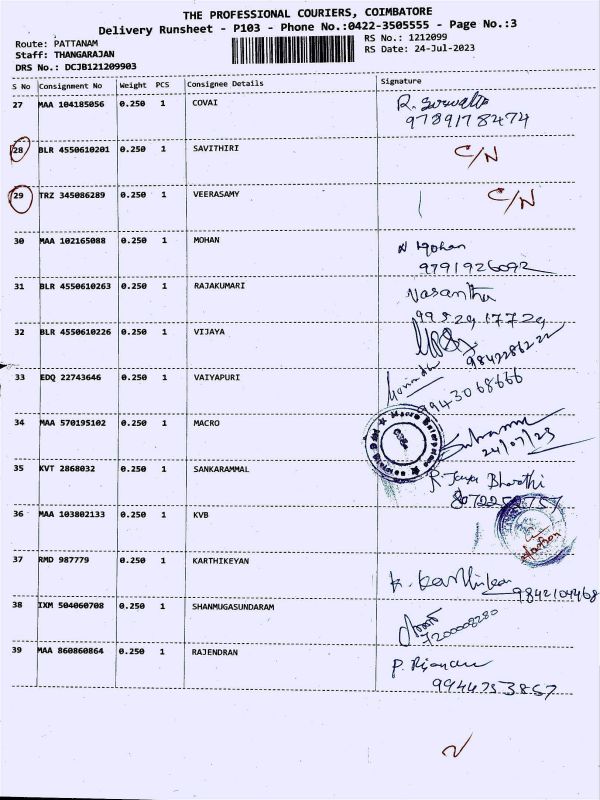 THE PROFESSIONAL COURIERS, COIMBATORE
Delivery Runsheet - P103 - Phone No.:0422-3505555 - Page No.:3
Route: PATTANAM
RS No.: 1212099
Staff: THANGARAJAN
RS Date: 24-Jul-2023
DRS No.: DCJB121209903
S No Consignment No Weight PCS Consignee Details Signature
27 MAA 104185056 0.250 1 COVAI R.
9789178474
28 BLR 4550610201 0.250 1 SAVITHIRI C/N
29 TRZ 345086289 0.250 1 VEERASAMY C/N
30 MAA 102165088 0.250 1 MOHAN N Mohan
9791926092
31 BLR 4550610263 0.250 1 RAJAKUMARI Vasantha
9952917729
32 BLR 4550610226 0.250 1 VIJAYA
9842286222
33 EDQ 22743646 0.250 1 VAIYAPURI
9943068666
34 MAA 570195102 0.250 1 MACRO
24/07/23
35 KVT 2868032 0.250 1 SANKARAMMAL R. Jaya Bharathi
36 MAA 103802133 0.250 1 KVB
37 RMD 987779 0.250 1 KARTHIKEYAN K. Karthikeyan
9842104468
38 IXM 504060708 0.250 1 SHANMUGASUNDARAM
7200008280
39 MAA 860860864 0.250 1 RAJENDRAN P.
9944753857